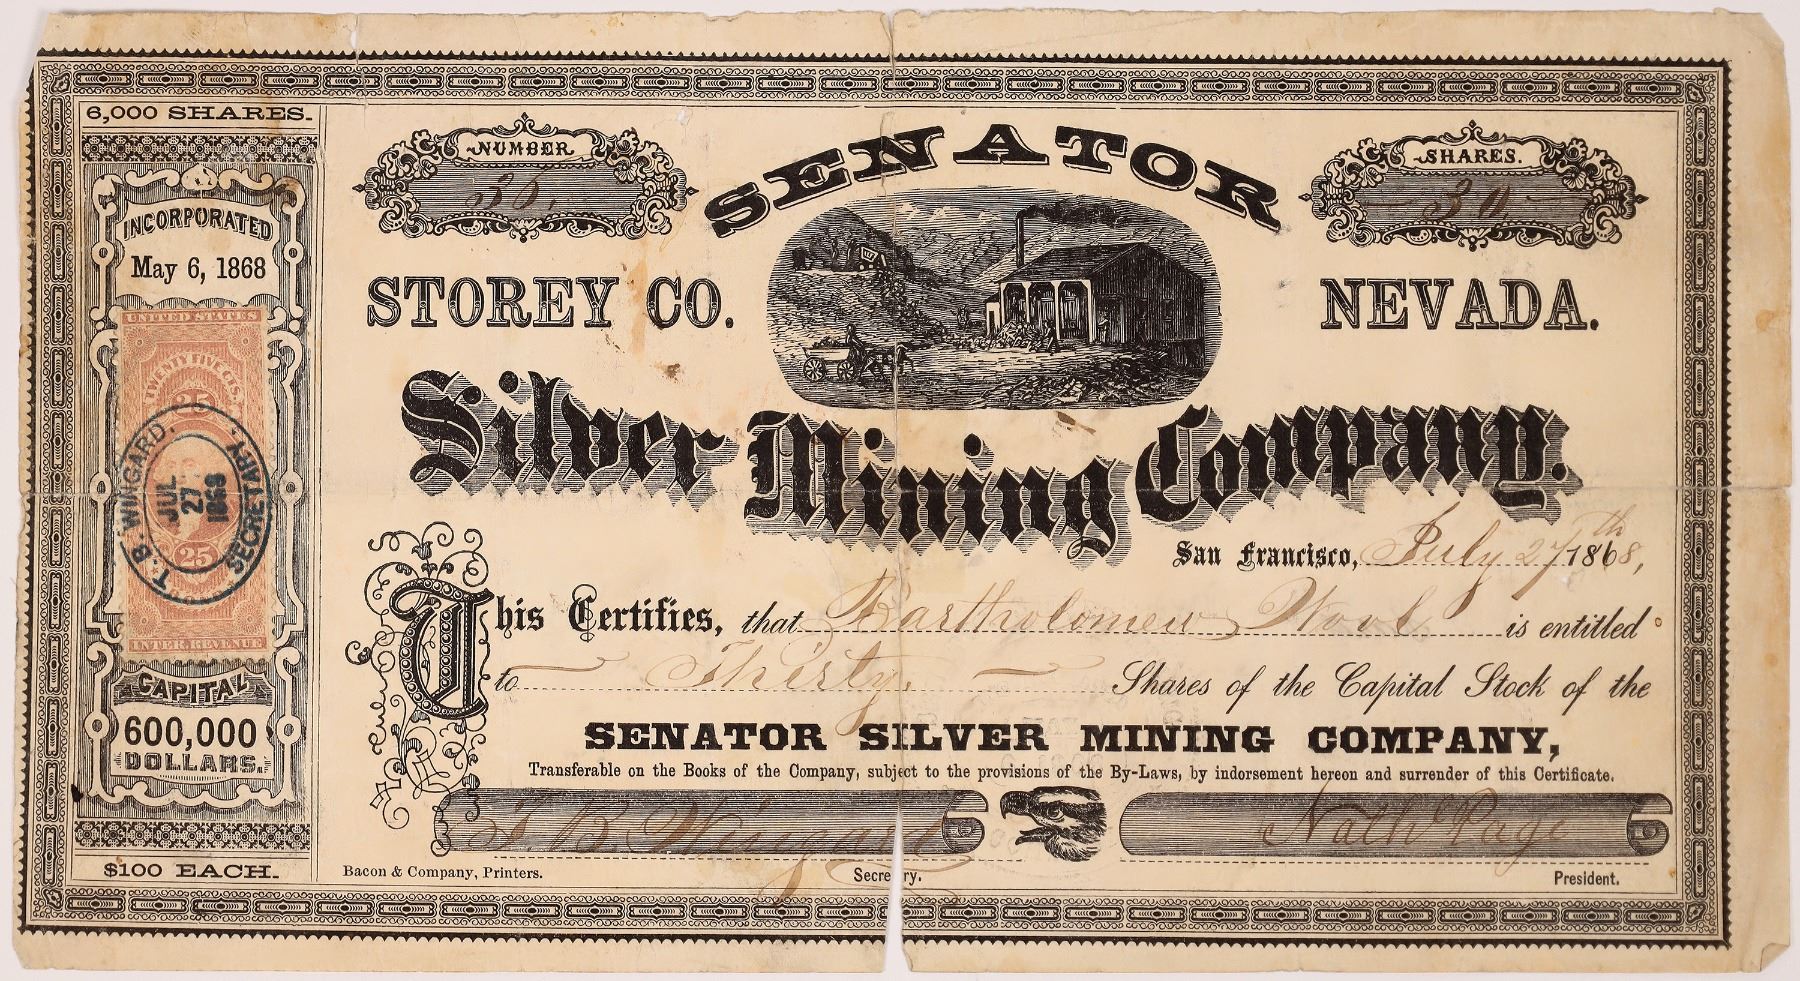 6,000 SHARES.
INCORPORATED
May 6, 1868
UNITED STATES
TWENTY FIVE CTS.
25
T. B. WINGARD.
JUL
27
1868
SECRETARY.
25
INTER. REVENUE
CAPITAL
600,000
DOLLARS.
$100 EACH.
NUMBER
36.
SENATOR
SHARES.
30
STOREY CO.
NEVADA.
Silver Mining Company.
San Francisco, July 27th 1868,
This Certifies, that Bartholomew is entitled
to Thirty Shares of the Capital Stock of the
SENATOR SILVER MINING COMPANY,
Transferable on the Books of the Company, subject to the provisions of the By-Laws, by indorsement hereon and surrender of this Certificate.
T. B. Wingard
Nath Page
Bacon & Company, Printers.
Secretary.
President.